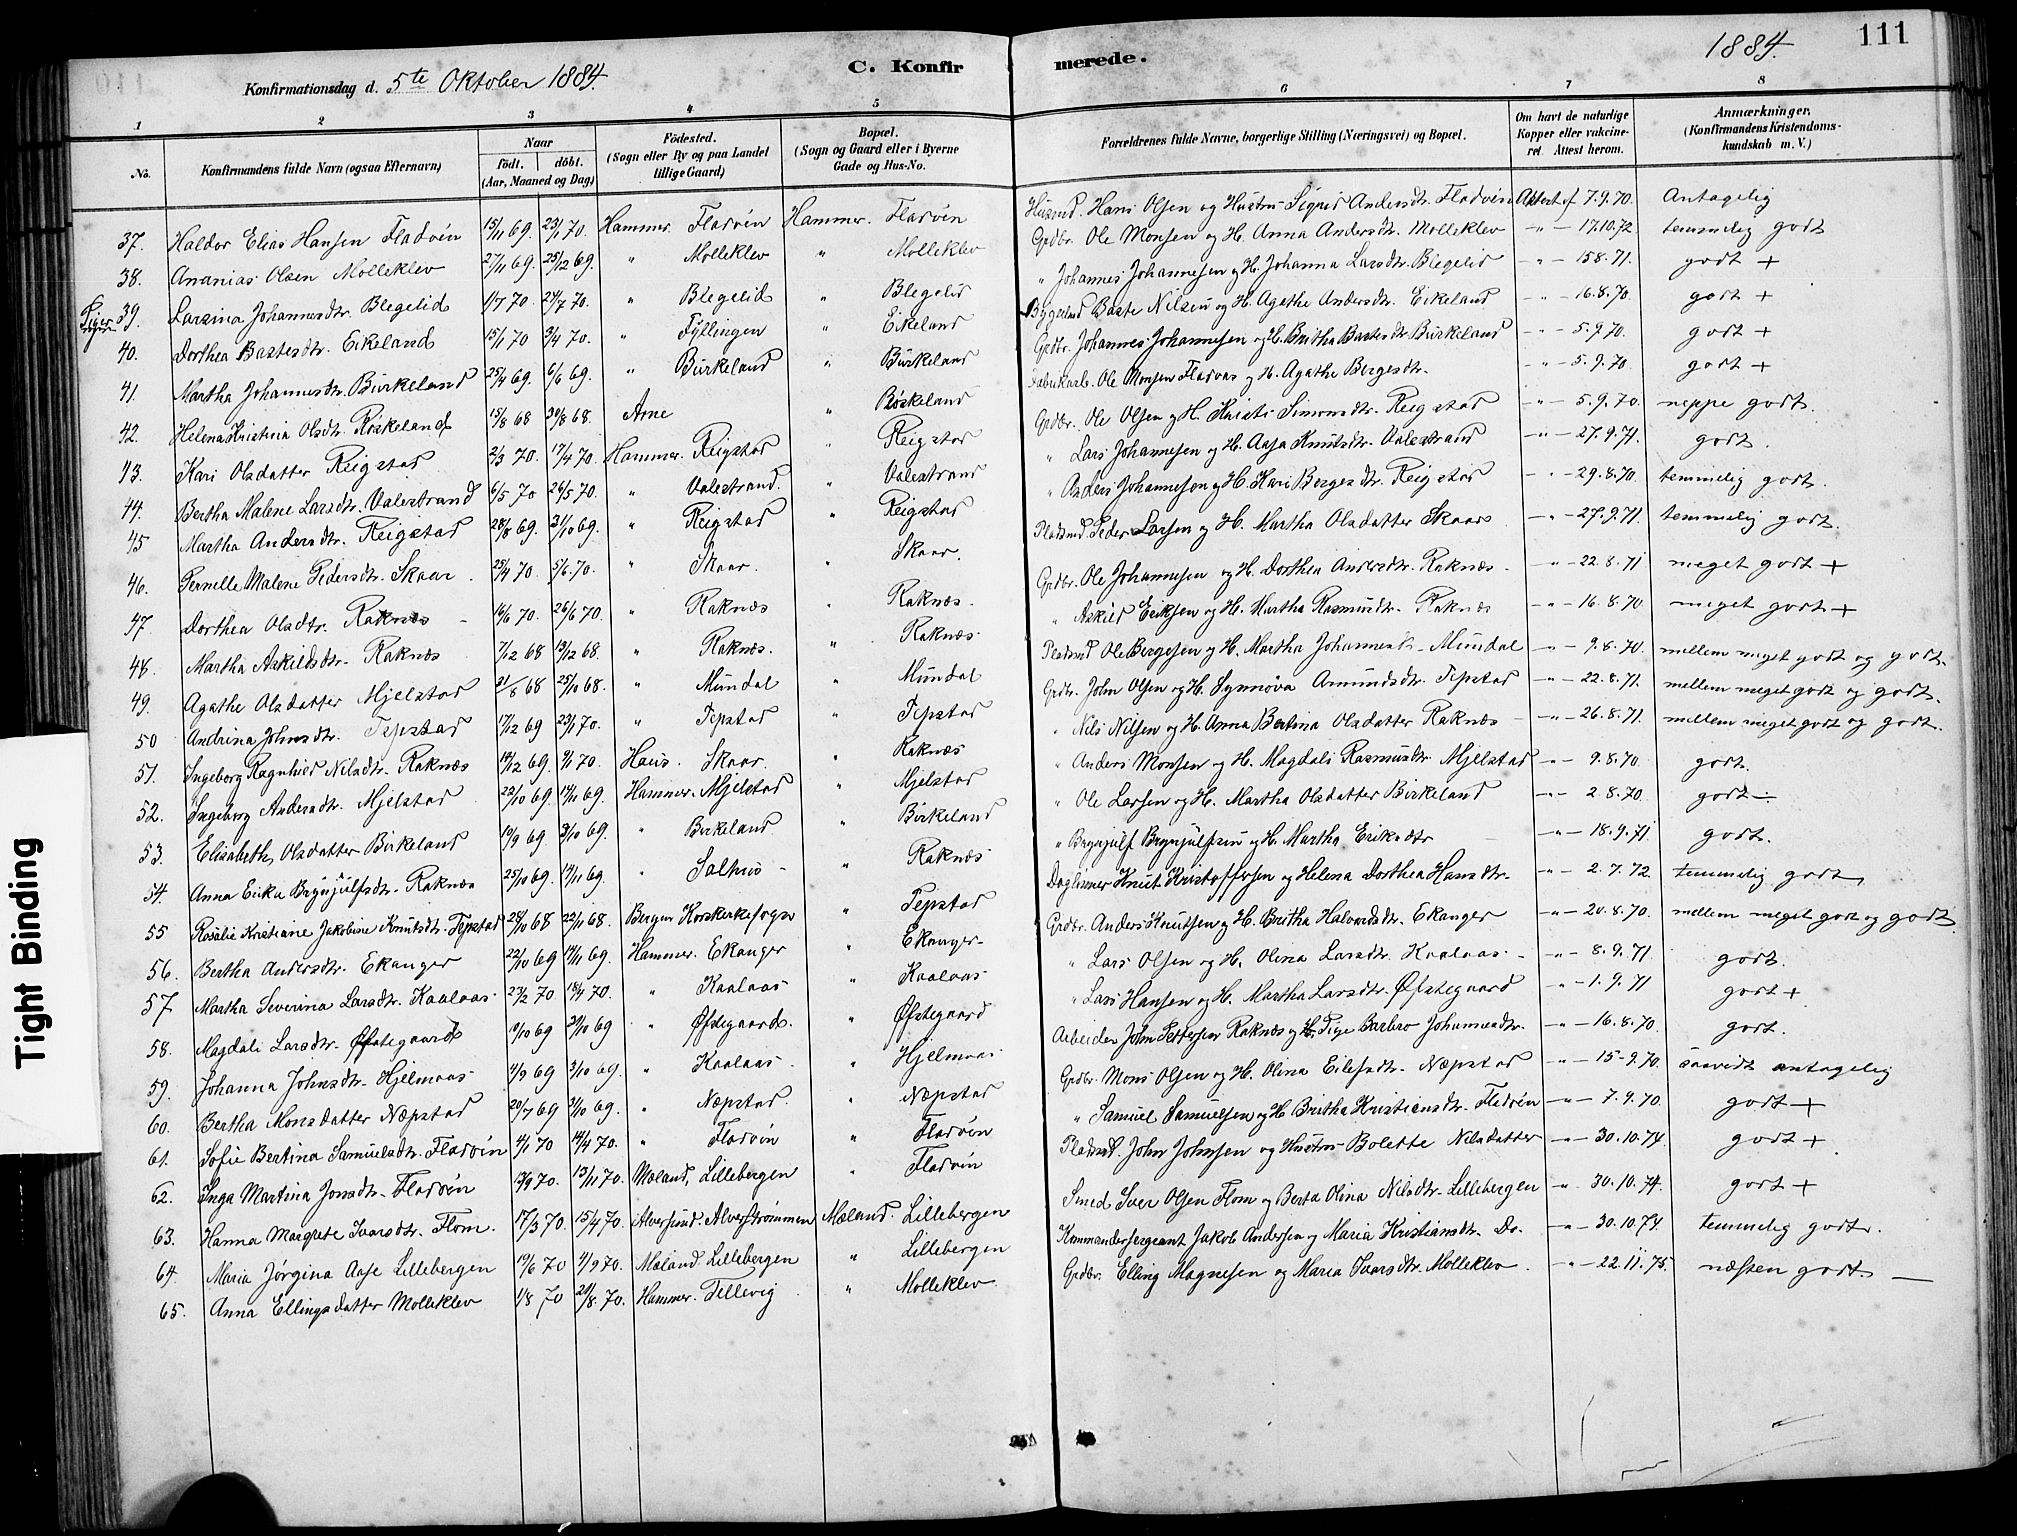 111
1884.
C. Konfirmerede.
Konfirmationsdag d. 5te Oktober 1884.
1 2 3 4 5 6 7 8
No. Konfirmandens fulde Navn (ogsaa Efternavn) Naar födt. döbt. (Aar, Maaned og Dag) Födested. (Sogn eller By og paa Landet tillige Gaard) Bopæl. (Sogn og Gaard eller i Byerne Gade og Hus-No. Forældrenes fulde Navne, borgerlige Stilling (Næringsvei) og Bopæl. Om havt de naturlige Kopper eller vakcineret. Attest herom. Anmærkninger. (Konfirmandens Kristendomskundskab m. V.)
37. Haldor Elias Hansen Fladvin 15/11 69. 23/1 70. Hammer Fladvin Hammer. Fladvin Husmd. Hans Olsen og Hustru Sigrid Andersdtr. Fladvin Attest af 7.9.70. Antagelig
38. Ananias Olsen Molleklev 27/11 69. 25/12 69. " Molleklev " Molleklev Grdbr. Ole Monsen og H. Anna Andersdtr. Molleklev -"- 17.10.72. temmelig godt
Piger
39. Larsina Johannesdtr. Blegelid 1/7 70. 24/7 70. " Blegelid " Blegelid " Johannes Johannesen og H. Johanna Larsdtr. Blegelid -"- 15 8.71. godt +
40. Dorthea Bastesdtr. Eikeland 15/1 70 3/4 70. " Fyllingen " Eikeland Baste Nilsen og H. Agathe Andersdtr. Eikeland -"- 16.8.70. godt +
41. Martha Johannesdtr. Birkeland 25/4 69. 6/6 69. " Birkeland " Birkeland Grdbr. Johannes Johannesen og H. Britha Bastesdtr. Birkeland -"- 5.9.70. godt +
42. Helena Kristina Olsdtr. Röskeland 15/8 68 30/8 68. Arne " Röskeland Fabrikarb. Ole Monsen Fladvas og H. Agathe Bergesdtr. -"- 5.9.70. godt +
43. Kari Olsdatter Reigstad 2/3 70. 17/4 70. Hammer. Reigstad " Reigstad Grdbr. Ole Olsen og H. Kristi Simonsdtr. Reigstad -"- 5.9.70. neppe godt.
44. Bertha Malene Larsdtr. Valestrand 6/5 70 26/5 70. " Valestrand. " Valestrand " Lars Johannesen og H. Aasa Knutsdtr. Valestrand -"- 27.9.71. godt.
45 Martha Andersdtr. Reigstad 28/8 69. 31/10 69. " Reigstad " Reigstad " Anders Johannesen og H. Kari Bergesdtr. Reigstad -"- 29.8.70. temmelig godt.
46. Pernelle Malene Pedersdtr. Skaar. 25/4 70. 5/6 70. " Skaar. " Skaar. Pladsmd Peder Larsen og H. Martha Olsdatter Skaar -"- 27.9.71. temmelig godt.
47. Dorthea Olsdtr. Raknæs 16/6 70. 26/6 70. " Raknæs " Raknæs. Grdbr. Ole Johannesen og H. Dorthea Andersdtr. Raknæs -"- 22.8.71 meget godt +
48. Martha Askildsdtr. Raknæs 7/12 68 13/12 68. " Raknæs. " Raknæs. " Askild Eriksen og H. Martha Rasmusdtr. Raknæs -"- 16.8.70. meget godt +
49. Agathe Olsdatter Mjelstad 31/8 68 25/10 68. " Mundal " Mundal Pladsmd Ole Bergesen og H. Martha Johannesdtr. Mundal -"- 9.8.70. mellem meget godt og godt.
50 Andrina Johnsdtr. Tepstad 17/12 69 23/1 70. " Tepstad " Tepstad Grdbr. John Olsen og H. Synnöva Amundsdtr. Tepstad -"- 22.8.71. mellem meget godt og godt.
51. Ingeborg Ragnhild Nilsdtr. Raknæs 14/12 69. 9/1 70. Haus. Skaar. Raknæs " Nils Nilsen og H. Anna Bertina Olsdatter Raknæs -"- 26.8.71. mellem meget godt og godt.
52. Ingeborg Andersdtr. Mjelstad 22/10 69. 14/11 69. Hammer. Mjelstad " Mjelstad " Anders Monsen og H. Magdali Rasmusdtr. Mjelstad -"- 9.8.70. godt.
53. Elisabeth Olsdatter Birkeland 19/9 69. 3/10 69. " Birkeland " Birkeland " Ole Larsen og H. Martha Olsdatter Birkeland -"- 2.8.70. godt -
54. Anna Erika Brynjulfsdtr. Raknæs 25/10 69. 14/11 69. " Salhus - " Raknæs " Brynjulf Brynjulfsen og H. Martha Eriksdtr -"- 18.9.71. godt.
55 Rosalie Kristiane Jakobine Knutsdtr. Tepstad 28/10 68 22/11 68. Bergen Korskirkesogn " Tepstad Daglönner Knut Kristoffersen og Helena Dorthea Hansdtr. -"- 2.7.72. temmelig godt
56. Bertha Andersdtr. Ekanger 22/10 69 14/11 69. Hammer. Ekanger " Ekanger Grdbr. Anders Knutsen og H. Britha Halvardsdtr. Ekanger -"- 20.8.70. mellem meget godt og godt
57. Martha Severina Larsdtr. Kaalaas 23/2 70 18/4 70. " Kaalaas " Kaalaas " Lars Olsen og H. Olina Larsdtr. Kaalaas -"- 8.9.71. godt.
58. Magdali Larsdtr. Øfstegaard 10/10 69 31/10 69 " Øfstegaard. " Øfstegaard " Lars Hansen og H. Martha Larsdtr. Øfstegaard -"- 1.9.71 godt +
59. Johanna Johnsdtr. Hjelmaas 4/9 69 3/10 69. " Kaalaas " Hjelmaas Arbeider John Pettersen Raknæs og H. Pige Barbro Johannesdtr. -"- 16.8.70. godt.
60. Bertha Monsdatter Næpstad 20/7 69 3/10 69. " Næpstad. " Næpstad Grdbr. Mons Olsen og H. Olina Eilefsdtr. Næpstad -"- 15.9.70. saavidt antagelig
61. Sofie Bertina Samuelsdtr. Fladvin 4/1 70 14/4 70. " Fladvin " Fladvin " Samuel Samuelsen og H. Britha Kristiansdtr. Fladvin -"- 7.9.70. godt +
62. Inga Martina Jonsdtr. Fladvin 13/9 70. 13/11 70. Mæland, Lillebergen " Fladvin Pladsmd. John Johnsen og Hustru Bolette Nilsdatter -"- 30.10.74. godt +
63. Hanna Margrete Ivarsdtr. Flom. 17/3 70. 15/4 70. Alversund. Alverströmmen Mæland. Lillebergen Smed Iver Olsen Flom og Berta Olina Nilsdtr. Lillebergen -"- 30.10.74. godt +
64. Maria Jörgina Aase Lillebergen 19/6 70 4/9 70. Mæland. Lillebergen " Lillebergen Kommandersergeant Jakob Andersen og Maria Kristiansdtr. Do. -"- 30.10.74 temmelig godt.
65. Anna Ellingsdatter Molleklev 1/8 70 21/8 70. Hammer. Tellevig " Molleklev Grdbr. Elling Magnesen og Maria Ivarsdtr. Molleklev. -"- 22.11.75. næsten godt. —
Tight Binding